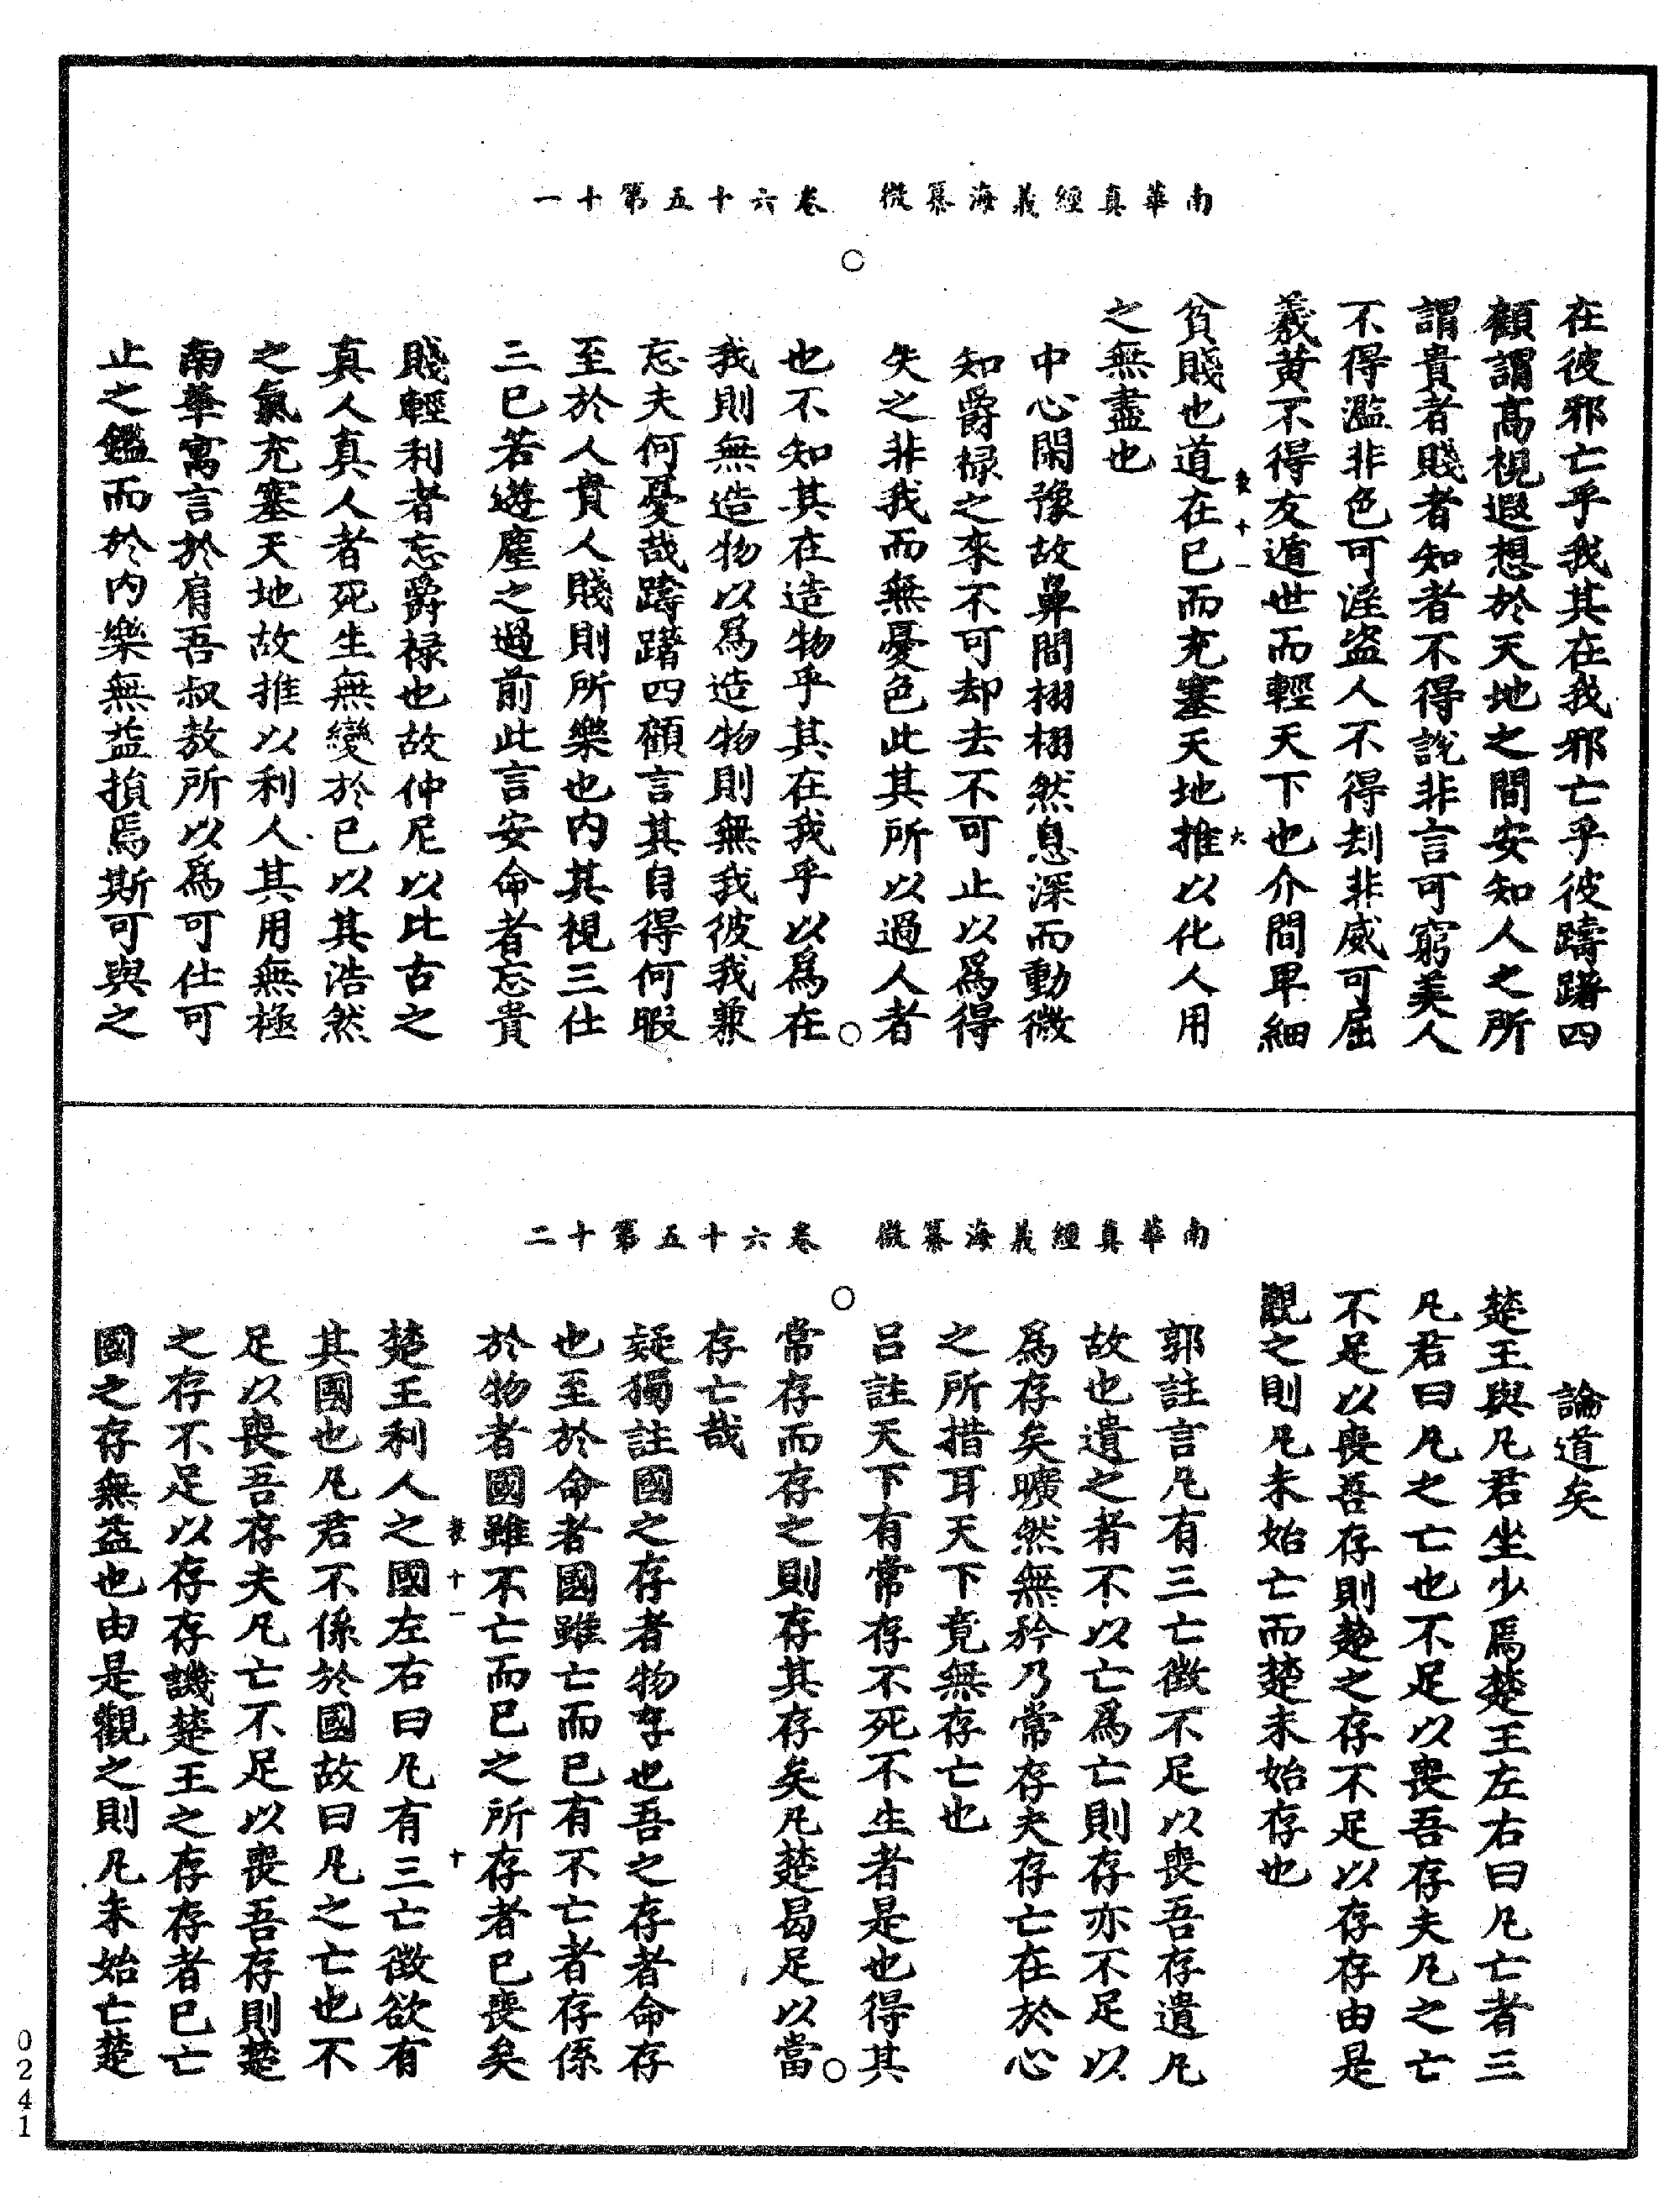 南華真經義海纂微　卷六十五第十一
在彼邪亡乎我其在我邪亡乎彼躊躇四
顧謂高視遐想於天地之間安知人之所
謂貴者賤者知者不得説非言可窮美人
不得濫非色可淫盜人不得刦非威可屈
羲黄不得友遁世而輕天下也介間卑細
貧賤也道在已而充塞天地推以化人用
之無盡也
中心閑豫故鼻間栩栩然息深而動微
知爵禄之來不可却去不可止以爲得
失之非我而無憂色此其所以過人者
也不知其在造物乎其在我乎以爲在
我則無造物以爲造物則無我彼我兼
忘夫何憂哉躊躇四顧言其自得何暇
至於人貴人賤則所樂也内其視三仕
三已若遊塵之過前此言安命者忘貴
賤輕利者忘爵禄也故仲尼以比古之
真人真人者死生無變於已以其浩然
之氣充塞天地故推以利人其用無極
南華寓言於肩吾叔敖所以爲可仕可
止之鑑而於内樂無益損焉斯可與之
南華真經義海纂微　卷六十五第十二
論道矣
楚王與凡君坐少焉楚王左右曰凡亡者三
凡君曰凡之亡也不足以喪吾存夫凡之亡
不足以喪吾存則楚之存不足以存存由是
觀之則凡未始亡而楚未始存也
郭註言凡有三亡徵不足以喪吾存遺凡
故也遺之者不以亡爲亡則存亦不足以
爲存矣曠然無矜乃常存夫存亡在於心
之所措耳天下竟無存亡也
吕註天下有常存不死不生者是也得其
常存而存之則存其存矣凡楚曷足以當
存亡哉
疑獨註國之存者物存也吾之存者命存
也至於命者國雖亡而已有不亡者存係
於物者國雖不亡而已之所存者已喪矣
楚王利人之國左右曰凡有三亡徵欲有
其國也凡君不係於國故曰凡之亡也不
足以喪吾存夫凡亡不足以喪吾存則楚
之存不足以存存譏楚王之存存者已亡
國之存無益也由是觀之則凡未始亡楚
0241